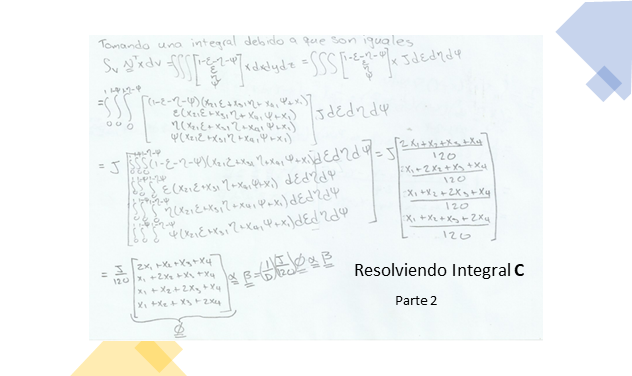 Tomando una integral debido a que son iguales
∫v N^T x dv = ∫∫∫ [1-ε-η-ψ ε η ψ] x dxdydz = ∫∫∫ [1-ε-η-ψ ε η ψ] x Jdεdηdψ
= ∫∫∫ [(1-ε-η-ψ)(x21ε+x31η+x41ψ+x1)
ε(x21ε+x31η+x41ψ+x1)
η(x21ε+x31η+x41ψ+x1)
ψ(x21ε+x31η+x41ψ+x1)] Jdεdηdψ
= J [∫∫∫(1-ε-η-ψ)(x21ε+x31η+x41ψ+x1)dεdηdψ
∫∫∫ ε(x21ε+x31η+x41ψ+x1) dεdηdψ
∫∫∫ η(x21ε+x31η+x41ψ+x1)dεdηdψ
∫∫∫ ψ(x21ε+x31η+x41ψ+x1)dεdηdψ]
= J [2x1+x2+x3+x4
120
x1+2x2+x3+x4
120
x1+x2+2x3+x4
120
x1+x2+x3+2x4
120]
= J/120 [2x1+x2+x3+x4
x1+2x2+x3+x4
x1+x2+2x3+x4
x1+x2+x3+2x4] α β = (1/D)(J/120) ϕ α β
ϕ
Resolviendo Integral C
Parte 2